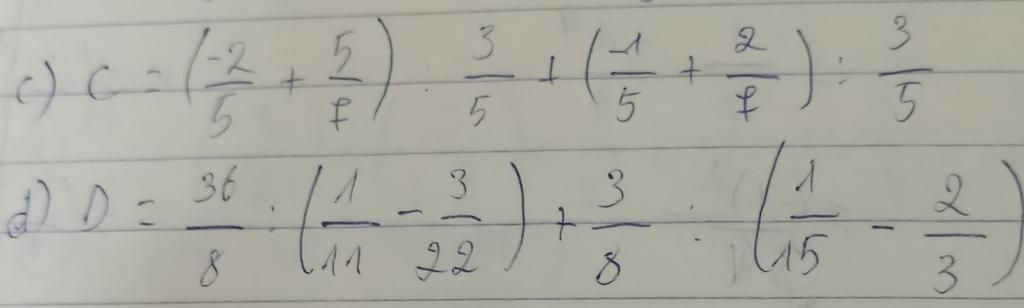 c) C = (-2/5 + 5/7) . 3/5 + (-1/5 + 2/7) : 3/5
d) D = 36/8 : (1/11 - 3/22) + 3/8 : (1/15 - 2/3)